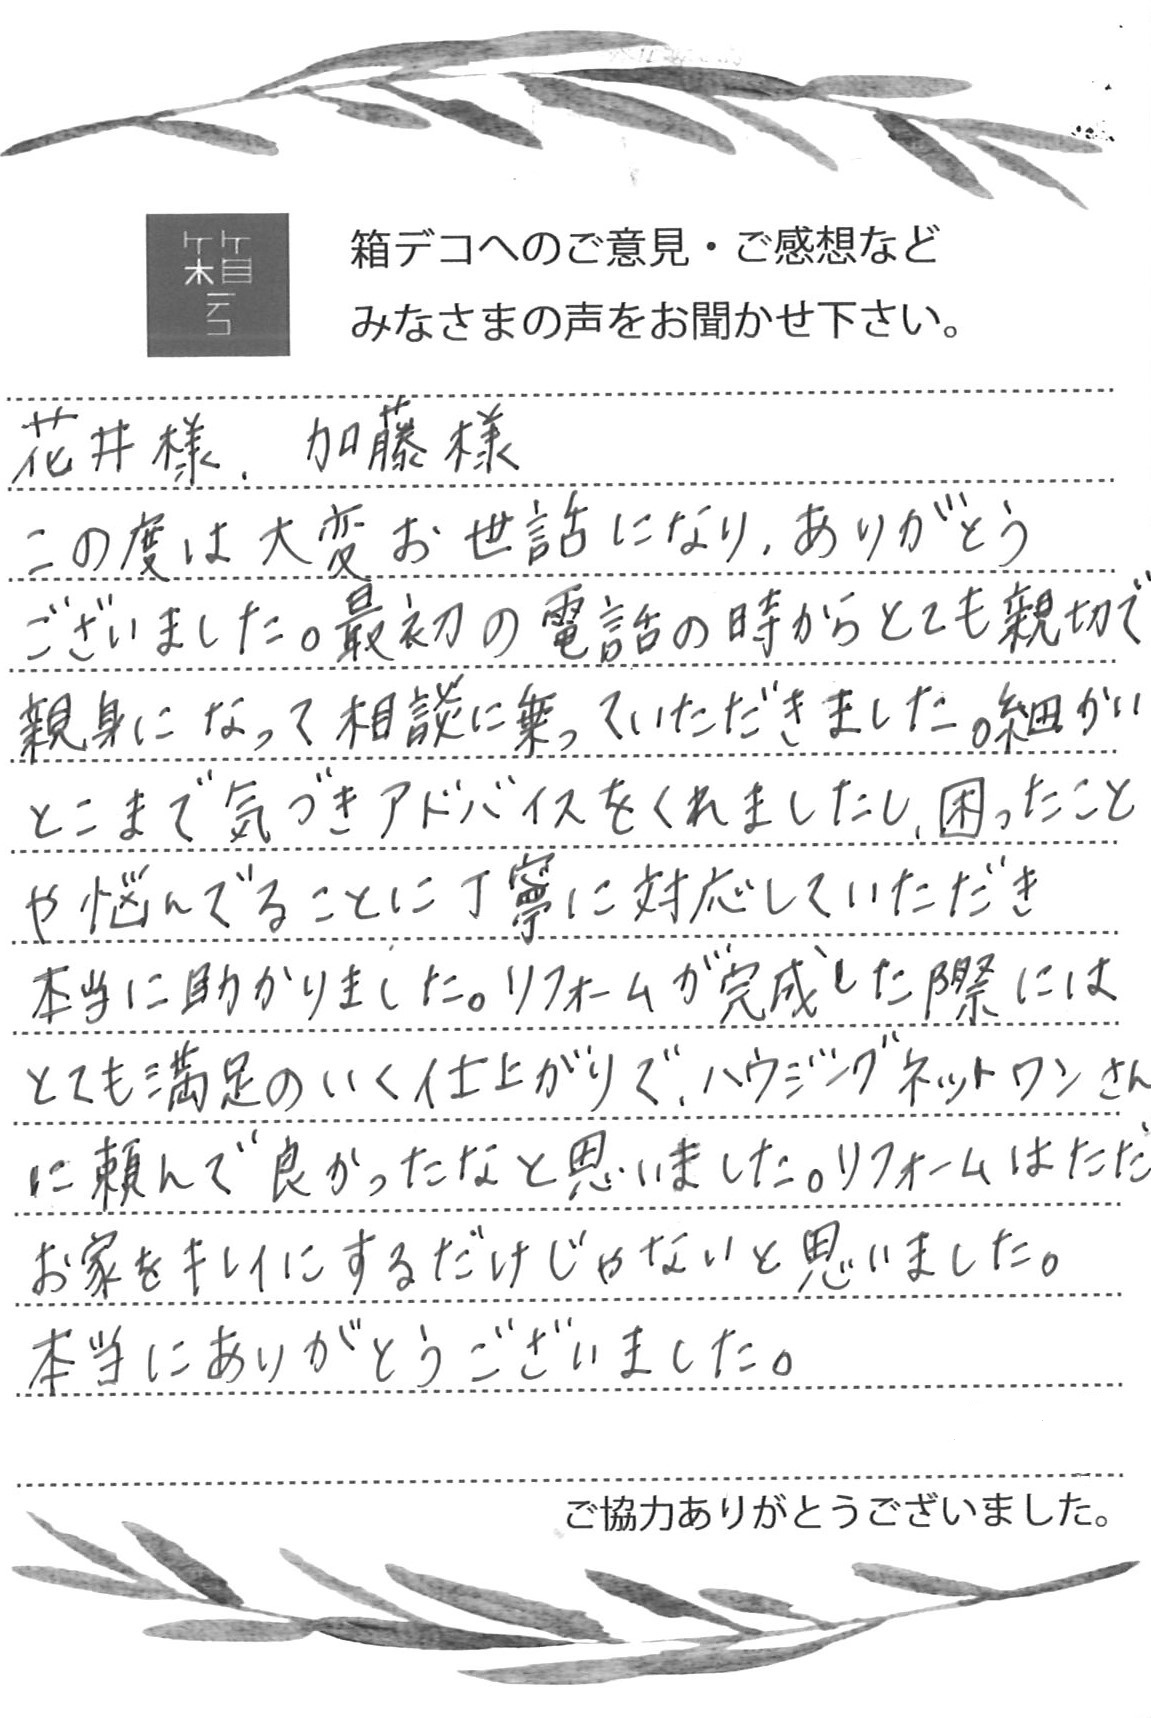 箱デコ
箱デコへのご意見・ご感想など
みなさまの声をお聞かせ下さい。
花井様、加藤様
この度は大変お世話になり、ありがとう
ございました。最初の電話の時からとても親切で
親身になって相談に乗っていただきました。細かい
とこまで気づきアドバイスをくれましたし、困ったこと
や悩んでることに丁寧に対応していただき
本当に助かりました。リフォームが完成した際には
とても満足のいく仕上がりで、ハウジングネットワンさん
に頼んで良かったなと思いました。リフォームはただ
お家をキレイにするだけじゃないと思いました。
本当にありがとうございました。
ご協力ありがとうございました。